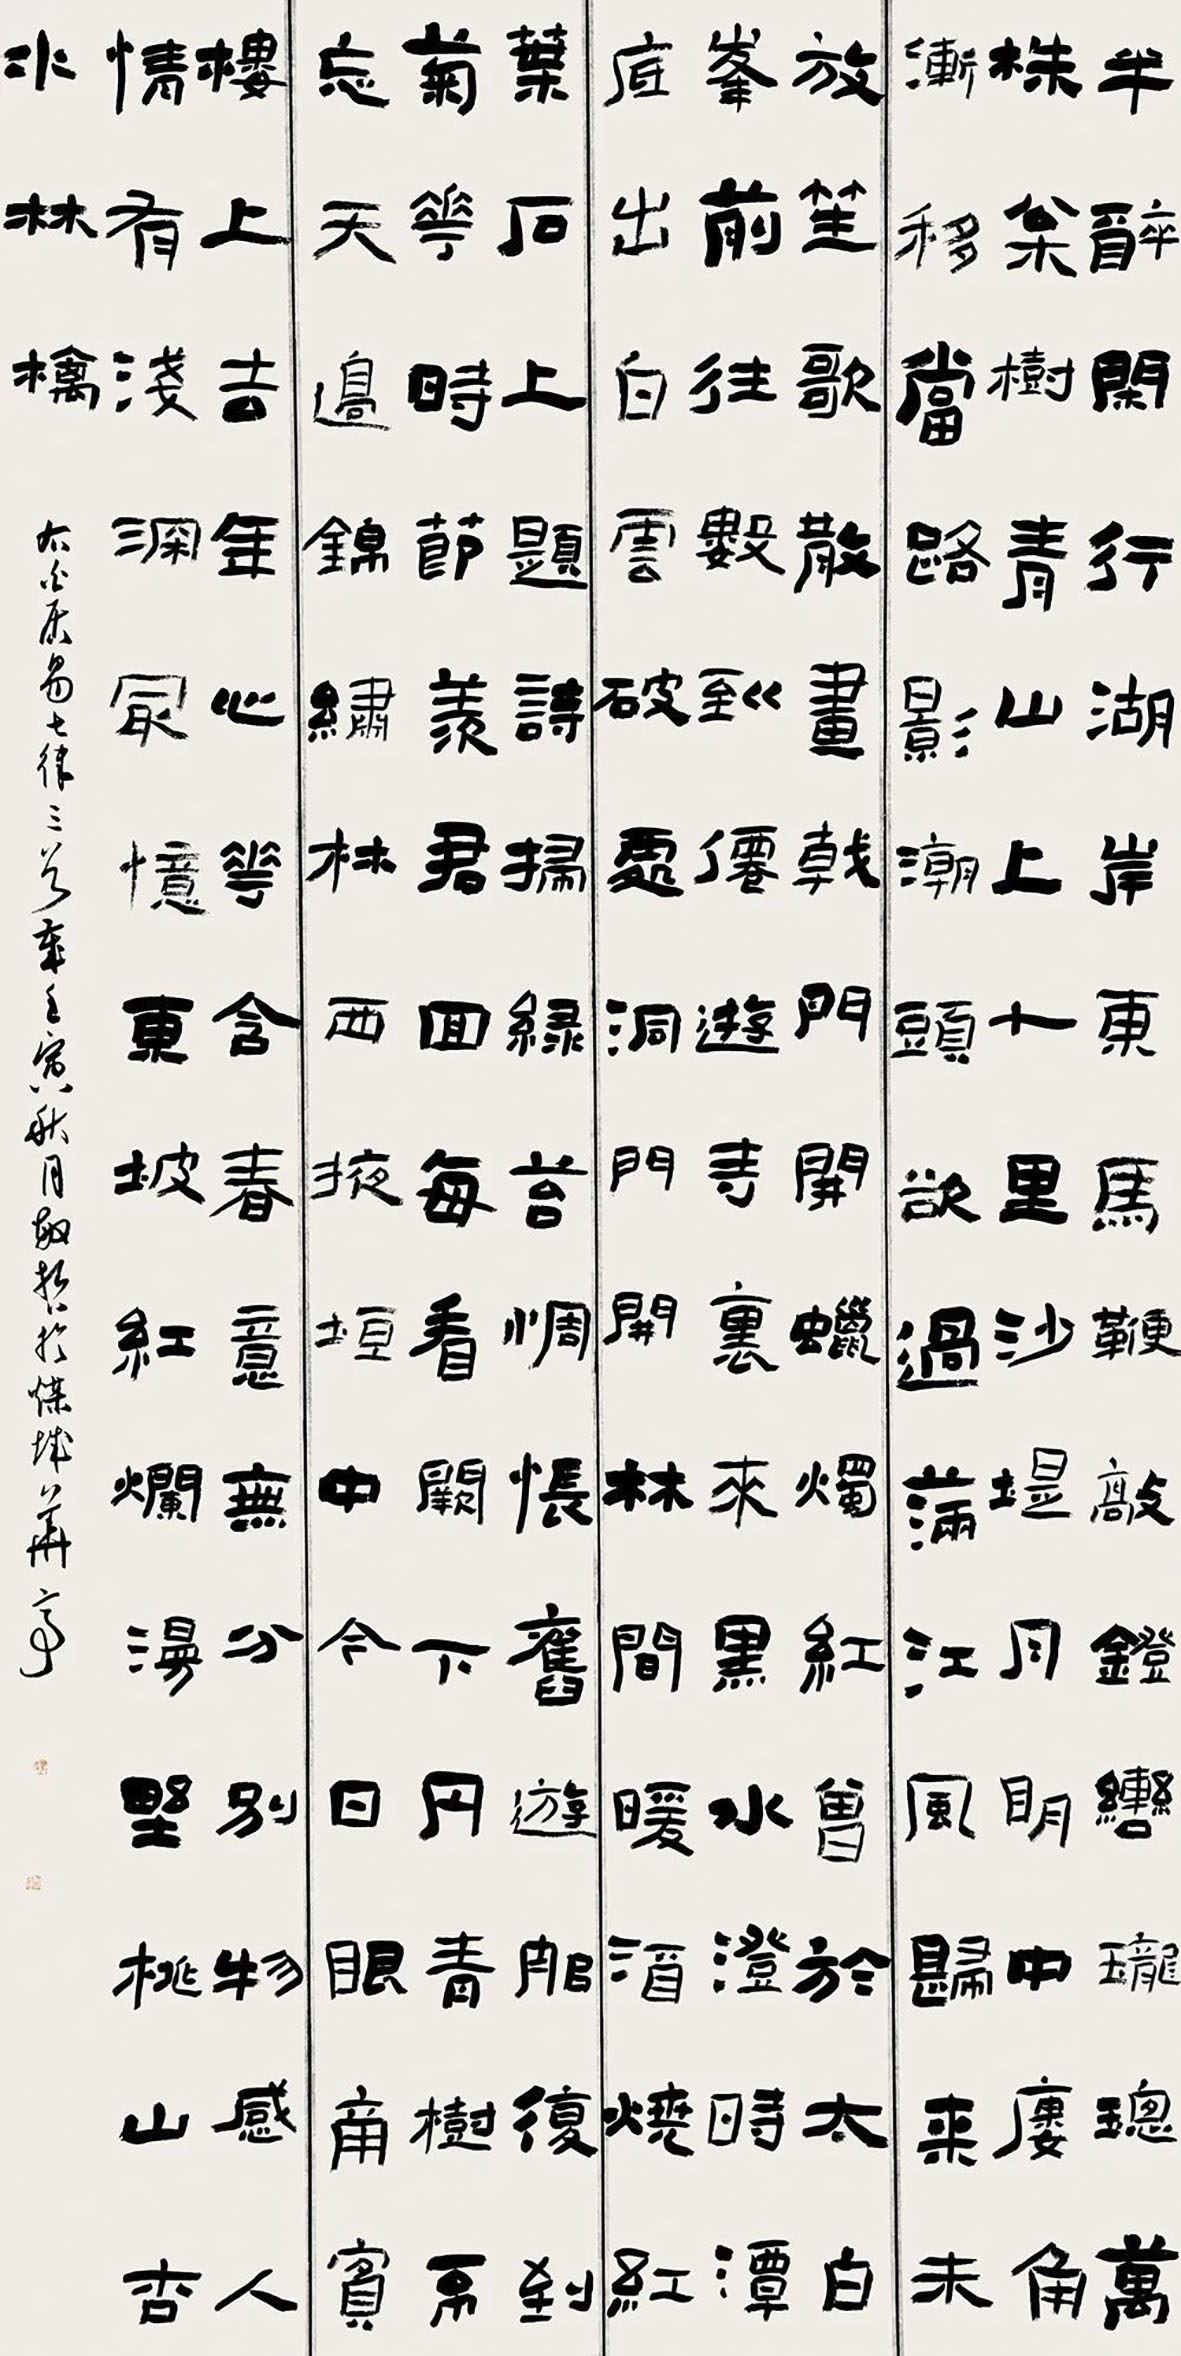 半醉閑行湖岸東馬鞭敲鐙轡瓏璁萬
株枀樹青山上十里沙堤月明中廔角
漸移當路影潮頭欲過滿江風歸来未
放笙歌散畫戟門開蠟燭紅曾於太白
峯前往數到僊遊寺裏來黑水澄時潭
底出白雲破處洞門開林間暖酒燒紅
葉石上題詩掃緑苔惆悵舊遊那復到
菊花時節羨君回每看闕下丹青樹不
忘天邊錦繡林西掖垣中今日眼南賓
樓上去年心花含春意無分別物感人
情有淺深最憶東坡紅爛漫野桃山杏
水林檎
右白居易七律三首歲壬寅秋月於煤城華亭